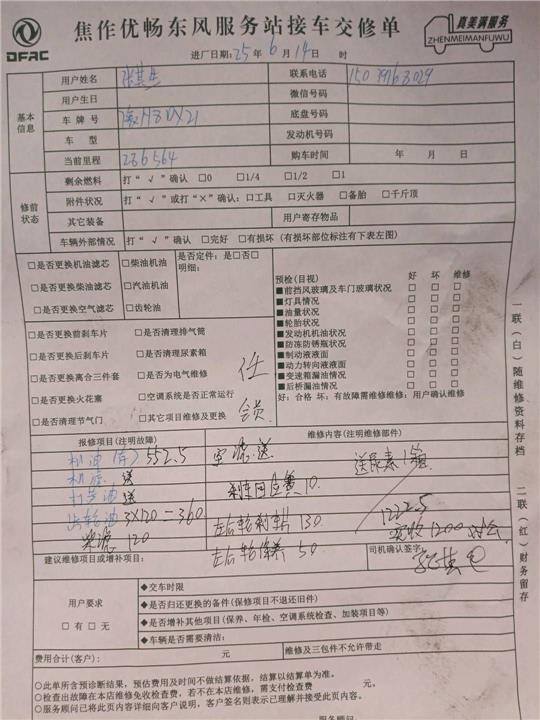 DFAC
焦作优畅东风服务站接车交修单
真美满服务
ZHENMEIMANFUWU
进厂日期:25年6月14日 时
基本信息
用户姓名
联系电话
用户生日 微信号码
车牌号 底盘号码
车型 发动机号码
当前里程 236564 购车时间 年 月 日
修前状态
剩余燃料 打“√”确认 □0 □1/4 □1/2 □1
附件状况 打“√”或打“×”确认:□工具 □灭火器 □备胎 □千斤顶
其它装备 用户寄存物品
车辆外部情况 打“√”确认 □完好 □有损坏(有损坏部位标注有下表左图)
□是否更换机油滤芯 □柴油机油 是否定件:是□否□
明细:
□是否更换柴油滤芯 □汽油机油
□是否更换空气滤芯 □齿轮油
□是否更换前刹车片 □是否清理排气筒
□是否更换后刹车片 □是否清理尿素箱
□是否更换离合三件套 □是否为电气维修
□是否更换火花塞 □空调系统是否正常运行
□是否清理节气门 □其它项目维修及更换
预检(目视) 好 坏 维修
■前挡风玻璃及车门玻璃状况 □ □ □
■灯具情况 □ □ □
■油量状况 □ □ □
■轮胎状况 □ □ □
■发动机机油状况 □ □ □
■防冻防锈瓶状况 □ □ □
■制动液液面 □ □ □
■动力转向液液面 □ □ □
■变速箱漏油情况 □ □ □
■后桥漏油情况 □ □ □
好:合格 坏:有故障需维修维修:用户确认维修
报修项目(注明故障) 维修内容(注明维修部件)
机油(存) 552.5 空滤.送 送尿素1箱
机滤 送
送 10
齿轮油 3×120=360 左右轮刹车片 130 1222.5
柴滤 120 实收1200
建议维修项目或增补项目: 左右轮保养 50 司机确认签字:
用户要求
□有 □无
◆交车时限
◆是否归还更换的备件(保修项目不退还旧件)
◆是否增补其他项目(保养、年检、空调系统检查、加装项目等)
◆车辆是否需要清洁:
费用合计(客户): 元 维修及三包件不允许带走
○此单所含预诊断结果,预估费用及时间不做结算依据,结算以结算单为准。
○检查出故障在本店维修免收检查费,若不在本店维修,需支付检查费 元。
○服务顾问已将此页内容详细向客户说明,客户签名则表示已理解并接受此页内容。
服务顾问
一联(白)随维修资料存档
二联(红)财务留存